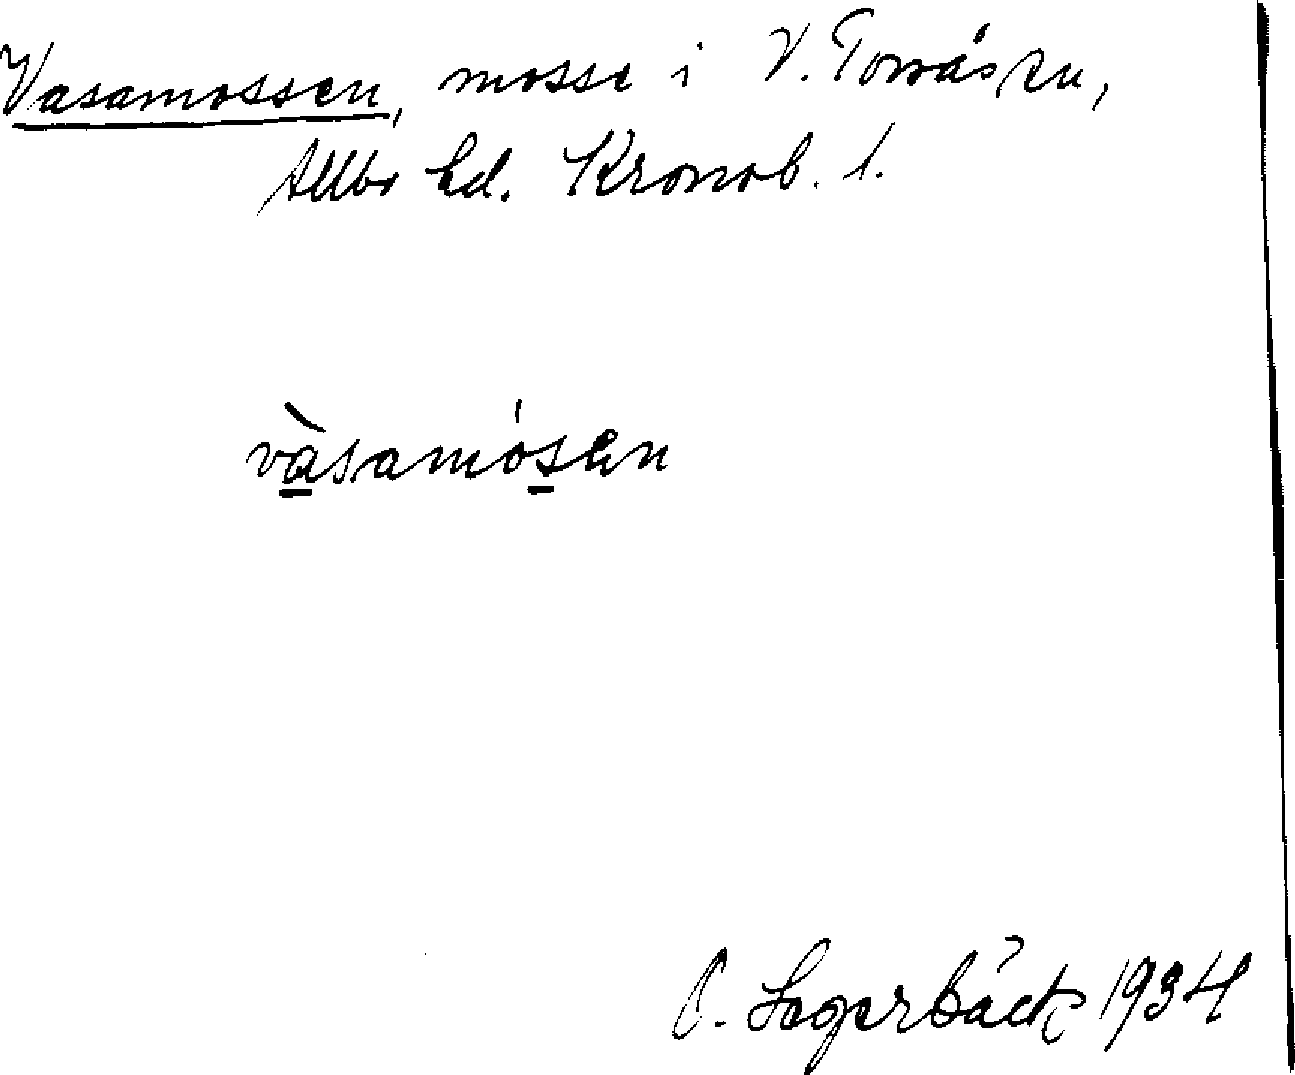 Vasamossen, mosse i V. Torsås sn,
Allbo hd. Kronob. l.
vàsamósen
O. Lagerbäck 1934